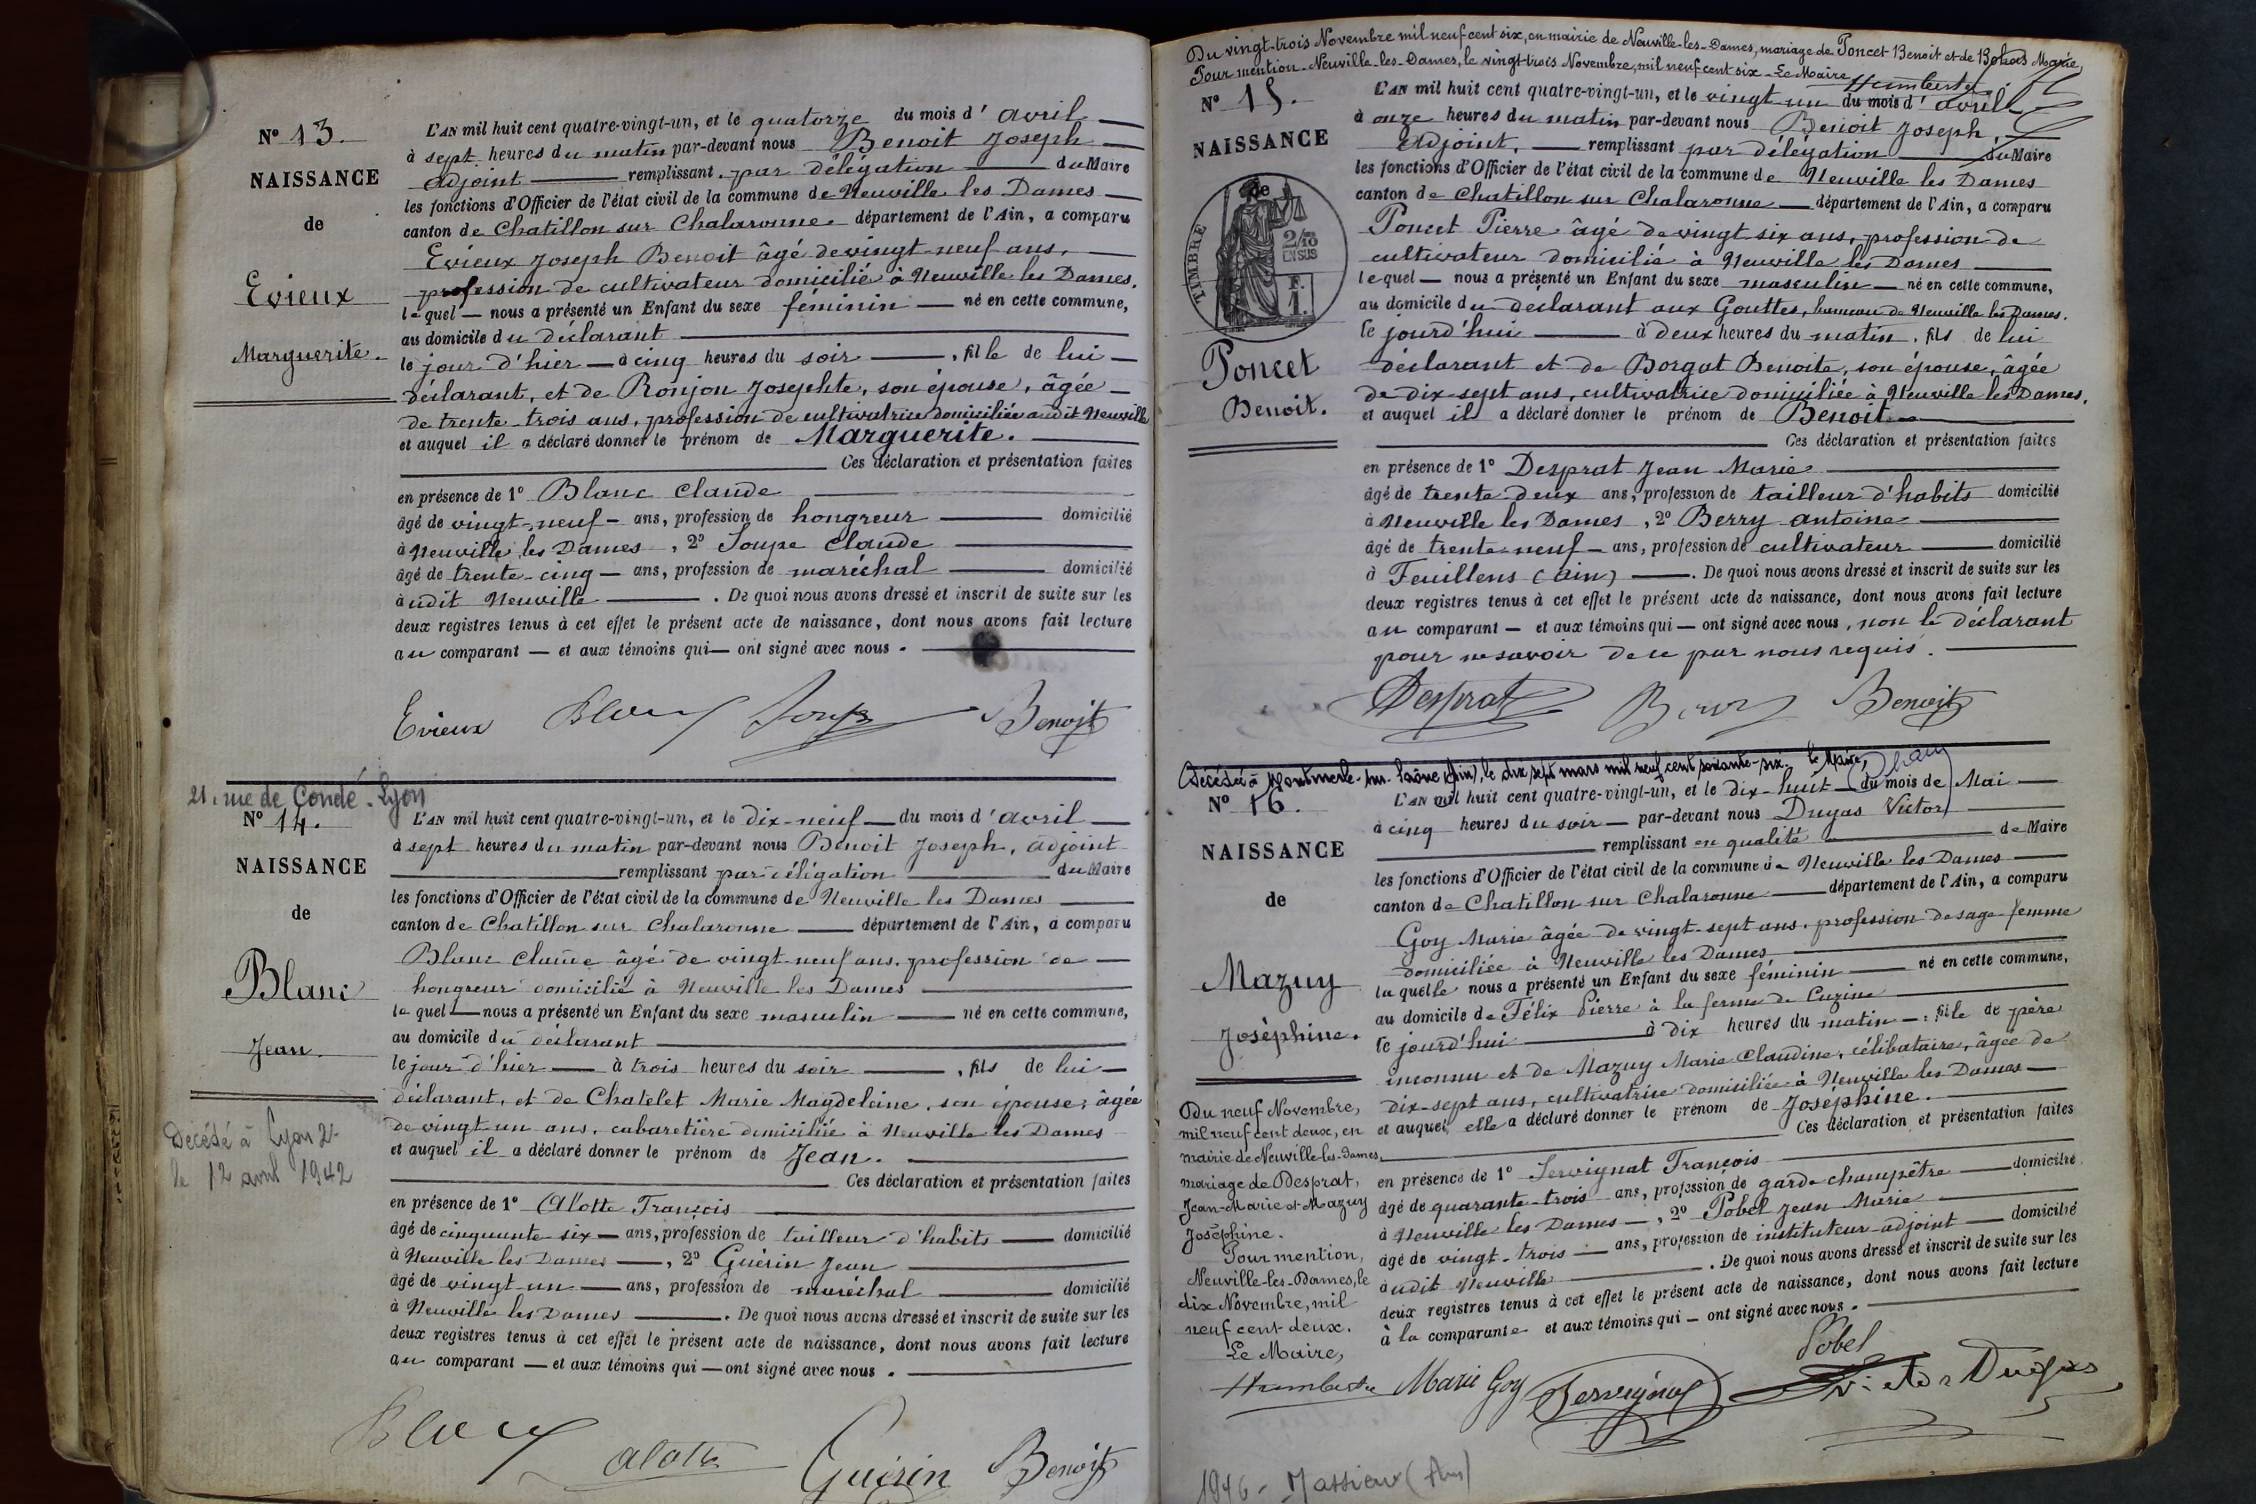 N° 13.
NAISSANCE
de
Evieux
Marguerite.
L'AN mil huit cent quatre-vingt-un, et le quatorze du mois d'avril
à sept heures du matin par-devant nous Benoit Joseph
adjoint remplissant par délégation du Maire
les fonctions d'Officier de l'état civil de la commune de Neuville les Dames
canton de Chatillon sur Chalaronne département de l'Ain, a comparu
Evieux Joseph Benoit âgé de vingt-neuf ans,
profession de cultivateur domicilié à Neuville les Dames.
lequel nous a présenté un Enfant du sexe féminin né en cette commune,
au domicile du déclarant
le jour d'hier à cinq heures du soir, fille de lui
déclarant, et de Ronjon Josephte, son épouse, âgée
de trente-trois ans, profession de cultivatrice domiciliée audit Neuville
et auquel il a déclaré donner le prénom de Marguerite.
Ces déclaration et présentation faites
en présence de 1° Blanc Claude
âgé de vingt-neuf ans, profession de hongreur domicilié
à Neuville les Dames, 2° Soupe Claude
âgé de trente-cinq ans, profession de maréchal domicilié
audit Neuville. De quoi nous avons dressé et inscrit de suite sur les
deux registres tenus à cet effet le présent acte de naissance, dont nous avons fait lecture
au comparant et aux témoins qui ont signé avec nous.
Evieux Blanc Soupe Benoit
21, rue de Condé. Lyon
N° 14.
NAISSANCE
de
Blanc
Jean.
Décédé à Lyon 2e
le 12 avril 1942
L'AN mil huit cent quatre-vingt-un, et le dix-neuf du mois d'avril
à sept heures du matin par-devant nous Benoit Joseph, adjoint
remplissant par délégation du Maire
les fonctions d'Officier de l'état civil de la commune de Neuville les Dames
canton de Chatillon sur Chalaronne département de l'Ain, a comparu
Blanc Claude âgé de vingt-neuf ans, profession de
hongreur domicilié à Neuville les Dames
lequel nous a présenté un Enfant du sexe masculin né en cette commune,
au domicile du déclarant
le jour d'hier à trois heures du soir, fils de lui
déclarant, et de Chatelet Marie Magdeleine, son épouse, âgée
de vingt un ans, cabaretière domiciliée à Neuville les Dames
et auquel il a déclaré donner le prénom de Jean.
Ces déclaration et présentation faites
en présence de 1° Alotte François
âgé de cinquante six ans, profession de tailleur d'habits domicilié
à Neuville les Dames, 2° Guérin Jean
âgé de vingt un ans, profession de maréchal domicilié
à Neuville les Dames. De quoi nous avons dressé et inscrit de suite sur les
deux registres tenus à cet effet le présent acte de naissance, dont nous avons fait lecture
au comparant et aux témoins qui ont signé avec nous.
Blanc Alotte Guérin Benoit
Du vingt-trois Novembre mil neuf cent six, en mairie de Neuville-les-Dames, mariage de Poncet Benoit et de Marie,
Pour mention. Neuville-les-Dames, le vingt-trois Novembre, mil neuf cent six. Le Maire Humbert
N° 15.
NAISSANCE
de
TIMBRE
2/10
EN SUS
F.
1.
Poncet
Benoit.
L'AN mil huit cent quatre-vingt-un, et le vingt un du mois d'avril
à onze heures du matin par-devant nous Benoit Joseph,
Adjoint, remplissant par délégation du Maire
les fonctions d'Officier de l'état civil de la commune de Neuville les Dames
canton de Chatillon sur Chalaronne département de l'Ain, a comparu
Poncet Pierre âgé de vingt six ans, profession de
cultivateur domicilié à Neuville les Dames
lequel nous a présenté un Enfant du sexe masculin né en cette commune,
au domicile du déclarant aux Gouttes, hameau de Neuville les Dames.
le jourd'hui à deux heures du matin, fils de lui
déclarant et de Borgat Benoite, son épouse, âgée
de dix-sept ans, cultivatrice domiciliée à Neuville les Dames.
et auquel il a déclaré donner le prénom de Benoit
Ces déclaration et présentation faites
en présence de 1° Desprat Jean Marie
âgé de trente deux ans, profession de tailleur d'habits domicilié
à Neuville les Dames, 2° Berry Antoine
âgé de trente-neuf ans, profession de cultivateur domicilié
à Feuillens (Ain). De quoi nous avons dressé et inscrit de suite sur les
deux registres tenus à cet effet le présent acte de naissance, dont nous avons fait lecture
au comparant et aux témoins qui ont signé avec nous, non le déclarant
pour ne savoir de ce par nous requis.
Desprat Berry Benoit
Décédée à Montmerle-sur-Saône (Ain), le dix sept mars mil neuf cent soixante-six. le Maire,
N° 16.
NAISSANCE
de
Mazuy
Joséphine.
Du neuf Novembre,
mil neuf cent deux, en
mairie de Neuville-les-Dames,
mariage de Desprat,
Jean-Marie et Mazuy
Joséphine.
Pour mention,
Neuville-les-Dames, le
dix Novembre, mil
neuf cent deux.
Le Maire,
Humbert
L'AN mil huit cent quatre-vingt-un, et le dix-huit du mois de Mai
à cinq heures du soir par-devant nous Dugas Victor
remplissant en qualité de Maire
les fonctions d'Officier de l'état civil de la commune de Neuville les Dames
canton de Chatillon sur Chalaronne département de l'Ain, a comparu
Goy Marie âgée de vingt-sept ans, profession de sage-femme
domiciliée à Neuville les Dames
laquelle nous a présenté un Enfant du sexe féminin né en cette commune,
au domicile de Félix Pierre à la ferme de Luzine
le jourd'hui à dix heures du matin, fille de père
inconnu et de Mazuy Marie Claudine, célibataire, âgée de
dix-sept ans, cultivatrice domiciliée à Neuville les Dames
et auquel elle a déclaré donner le prénom de Joséphine.
Ces déclaration et présentation faites
en présence de 1° Servignat François
âgé de quarante-trois ans, profession de garde champêtre domicilié
à Neuville les Dames, 2° Pobel Jean Marie
âgé de vingt-trois ans, profession de instituteur-adjoint domicilié
audit Neuville. De quoi nous avons dressé et inscrit de suite sur les
deux registres tenus à cet effet le présent acte de naissance, dont nous avons fait lecture
à la comparante et aux témoins qui ont signé avec nous.
Pobel
Marie Goy Servignat Victor Dugas
1946 - Massieux (Ain)